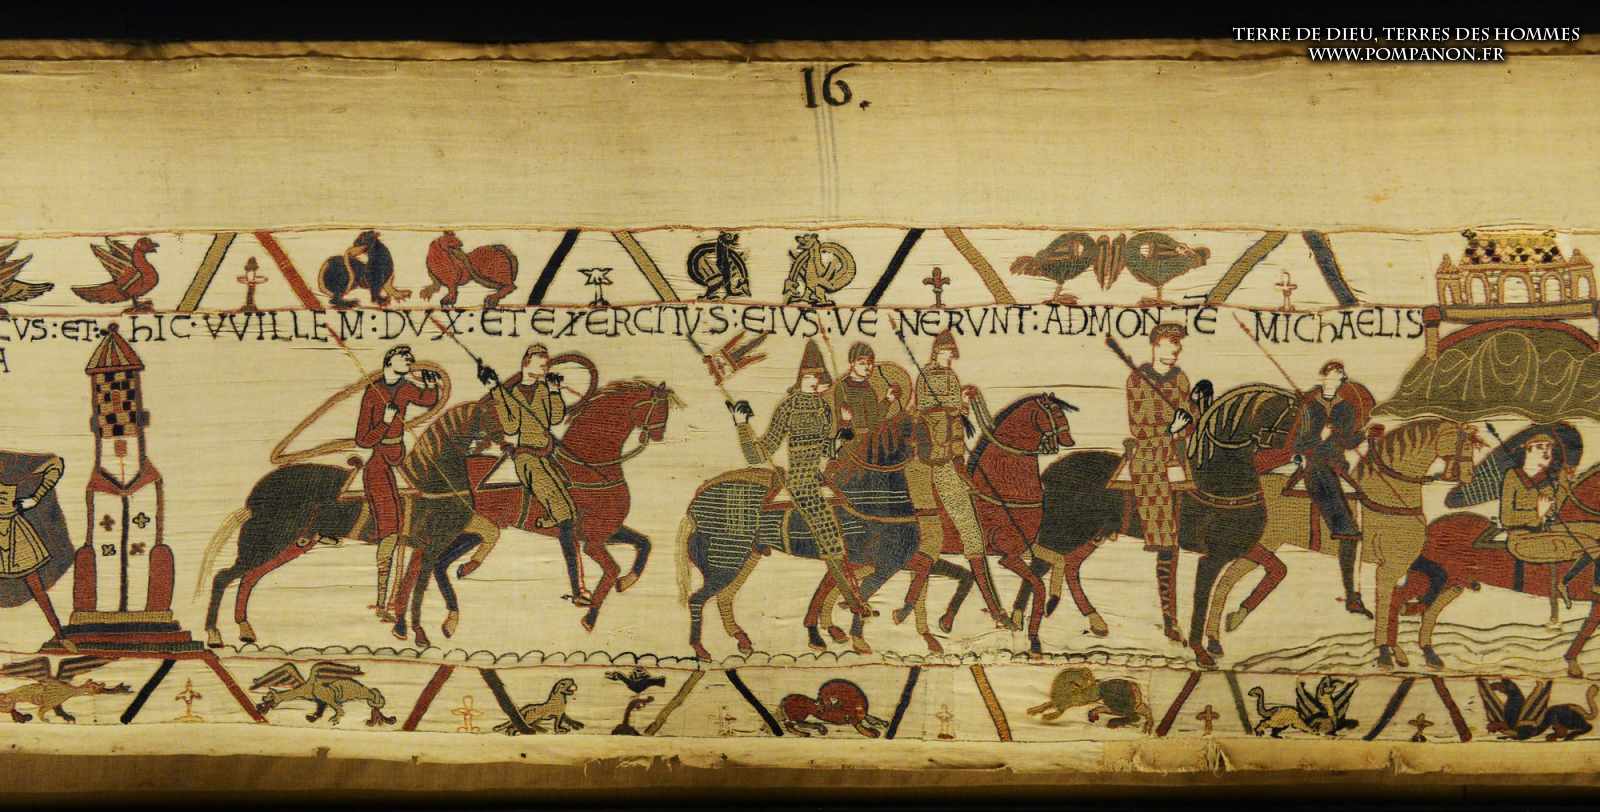 TERRE DE DIEU, TERRES DES HOMMES
WWW.POMPANON.FR
16.
CVS:ET: hIC·VVILLEM:DVX:ET EXERCITVS:EIVS:VENERVNT:AD MONTĒ MIChAELIS
A